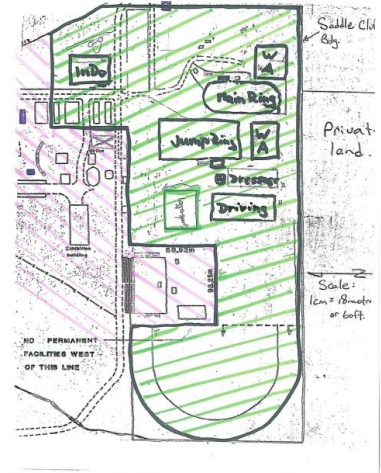 Saddle Club
Bdg.
InDo
W
A
Main Ring
Jump Ring
W
A
Private
land.
Dressage
Driving
Exhibition
building
68.92m
Scale:
1cm = 18 metre
or 60ft.
NO PERMANENT
FACILITIES WEST
OF THIS LINE